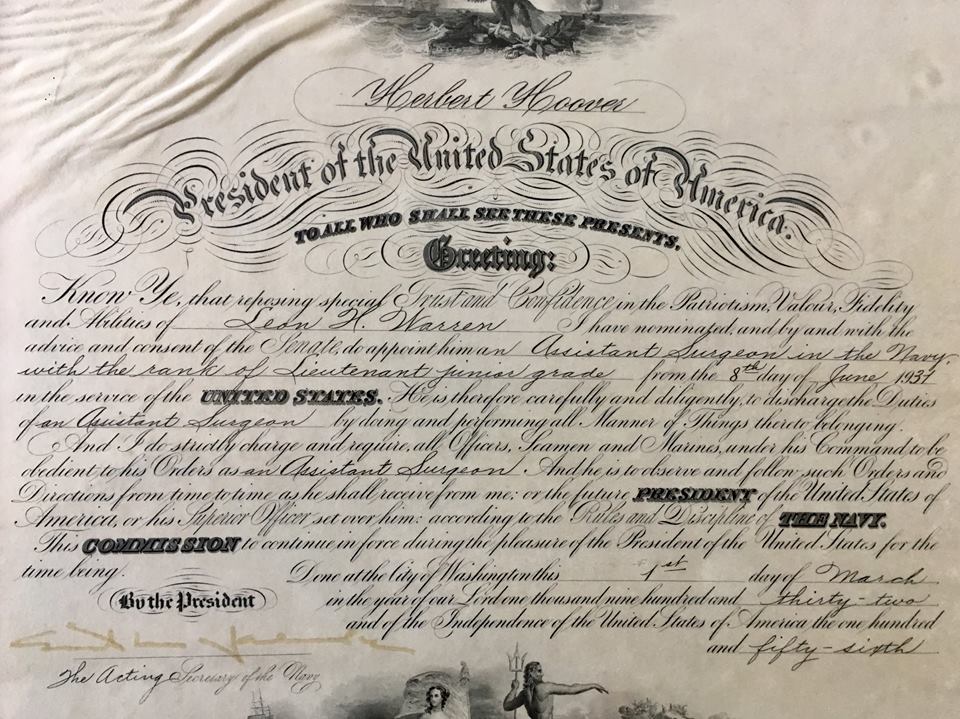 Herbert Hoover
President of the United States of America.
TO ALL WHO SHALL SEE THESE PRESENTS,
Greeting:
Know Ye, that reposing special Trust and Confidence in the Patriotism, Valour, Fidelity
and Abilities of Leon H. Warren I have nominated, and by and with the
advice and consent of the Senate, do appoint him an Assistant Surgeon in the Navy
with the rank of Lieutenant junior grade from the 8th day of June 1931
in the service of the UNITED STATES. He is therefore carefully and diligently, to discharge the Duties
of an Assistant Surgeon by doing and performing all Manner of Things thereto belonging.
And I do strictly charge and require, all Officers, Seamen and Marines, under his Command to be
obedient to his Orders as an Assistant Surgeon. And he is to observe and follow such Orders and
Directions from time to time as he shall receive from me: or the future PRESIDENT of the United States of
America, or his Superior Officer set over him: according to the Rules and Discipline of THE NAVY.
This COMMISSION to continue in force during the pleasure of the President of the United States for the
time being. Done at the City of Washington this 1st day of March
By the President in the year of our Lord one thousand nine hundred and thirty-two
and of the Independence of the United States of America, the one hundred
and fifty-sixth
The Acting Secretary of the Navy